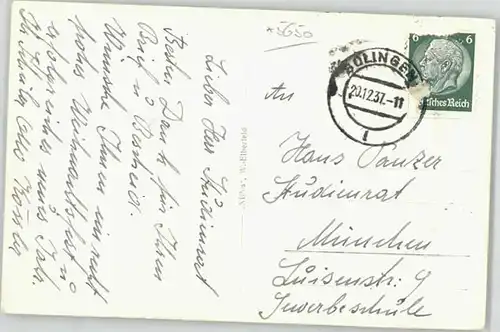 *5650
Lieber Herr Studienrat
Besten Dank für Ihren
Brief u Bescheid.
Wünsche Ihnen ein recht
frohes Weihnachtsfest u
ein neues Jahr.
6 6
Deutsches Reich
SOLINGEN
20.12.37.-11
1
W.-Elberfeld
An
Hans Panzer
Studienrat
München
Luisenstr. 9
Gewerbeschule